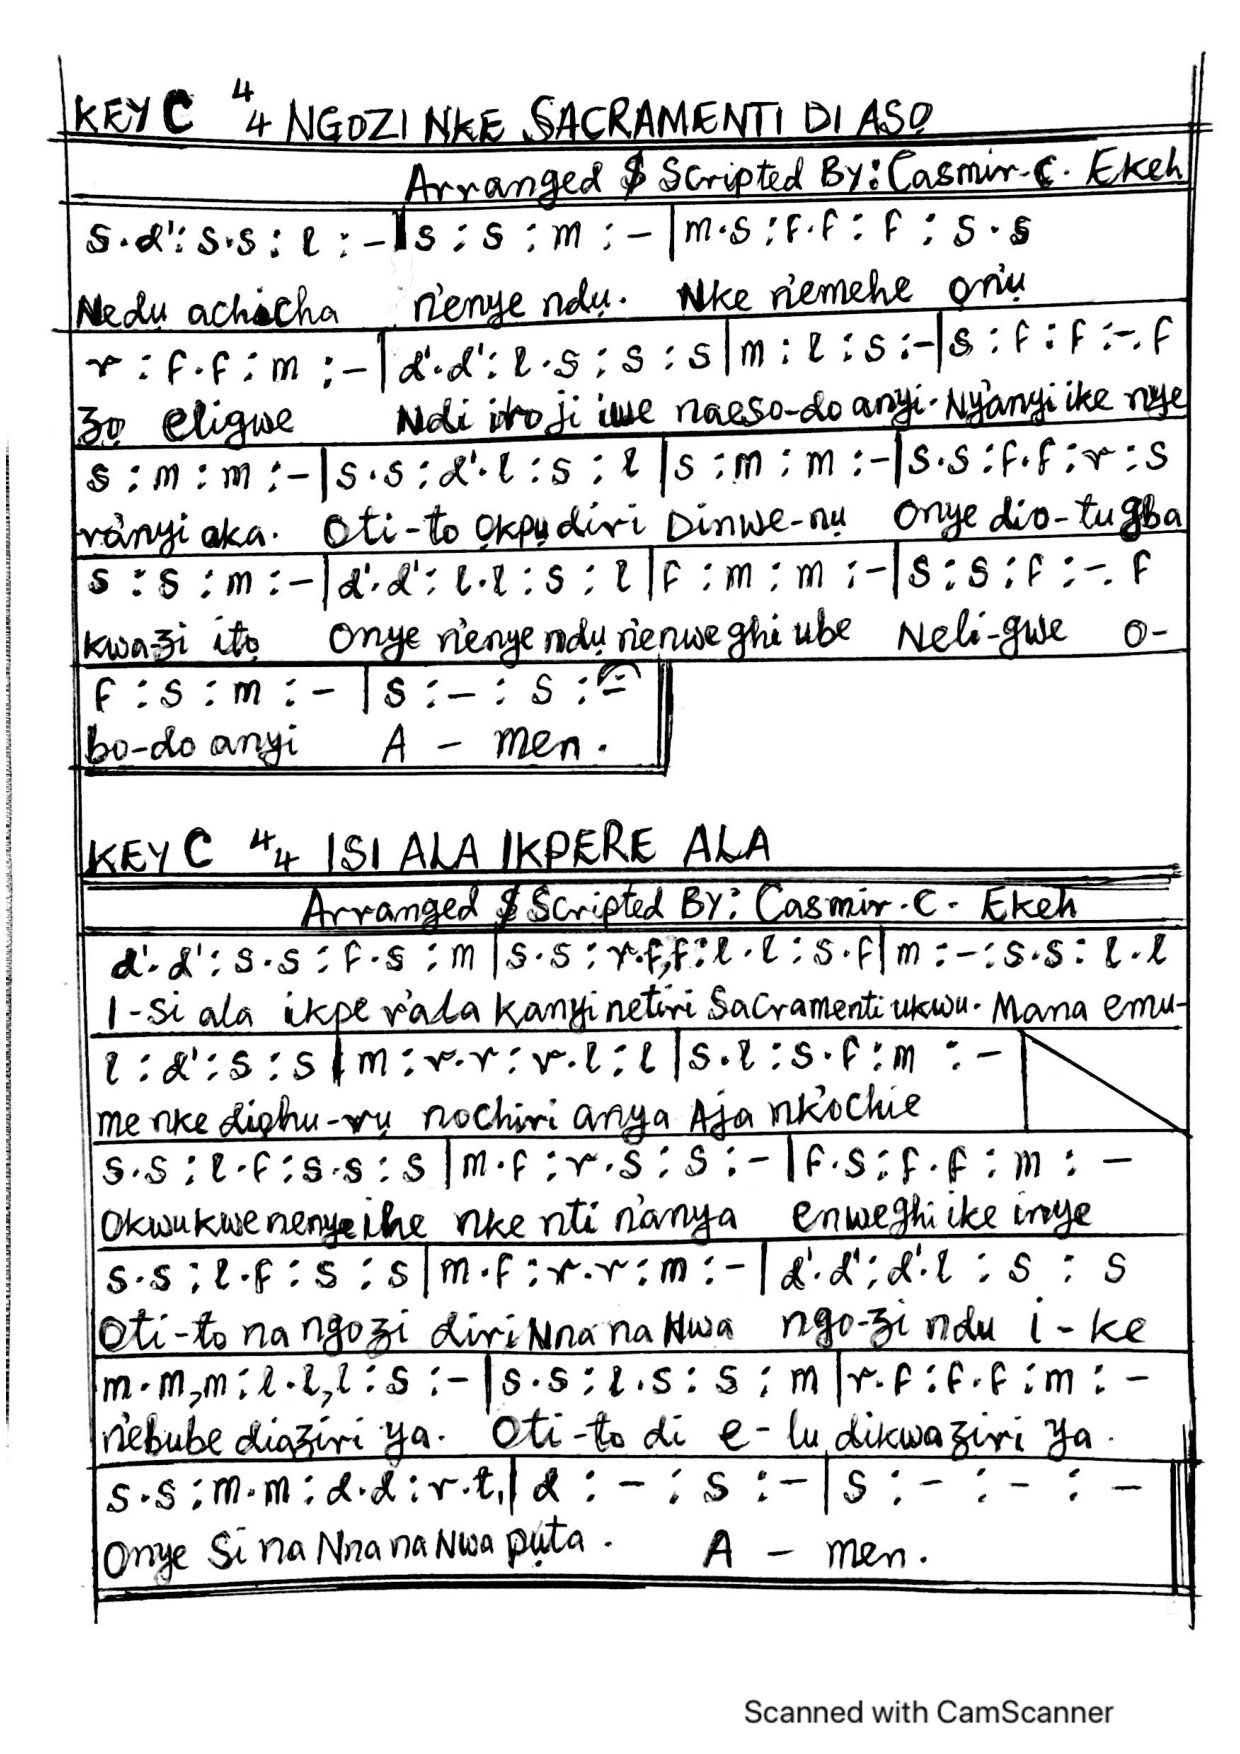 KEY C 4/4 NGOZI NKE SACRAMENTI DI ASỌ
Arranged $ Scripted By: Casmir.C. Ekeh
s.d':s.s:l:-|s:s:m:-|m.s:f.f:f:s.s
Nedụ achicha n'enye ndụ. Nke n'emehe ọnụ
r:f.f:m:-|d'.d':l.s:s:s|m:l:s:-|s:f:f:-.f
zọ eligwe Ndi iro ji iwe naeso-do anyi. Ny'anyi ike nye
s:m:m:-|s.s:d'.l:s:l|s:m:m:-|s.s:f.f:r:s
r'anyi aka. Oti-to ọkpụ diri Dinwe-nụ Onye dio-tu gba
s:s:m:-|d'.d':l.l:s:l|f:m:m:-|s:s:f:-.f
kwa-zi itọ Onye n'enye ndụ n'enweghi ube Neli-gwe o-
f:s:m:-|s:-:s:-
bo-do anyi A - men.
KEY C 4/4 ISI ALA IKPERE ALA
Arranged $ Scripted By: Casmir.C. Ekeh
d'.d':s.s:f.s:m|s.s:r.f,f:l.l:s.f|m:-:s.s:l.l
I-si ala ikpe r'ala kanyi netiri Sacramenti ukwu. Mana emu-
l:d':s:s|m:r.r:r.l:l|s.l:s.f:m:-
me nke diọhu-rụ nochiri anya Aja nk'ochie
s.s:l.f:s.s:s|m.f:r.s:s:-|f.s:f.f:m:-
Okwukwe nenye ihe nke nti n'anya enweghi ike inye
s.s:l.f:s:s|m.f:r.r:m:-|d'.d':d'.l:s:s
Oti-to na ngozi diri Nna na Nwa ngo-zi ndu i-ke
m.m,m:l.l,l:s:-|s.s:l.s:s:m|r.f:f.f:m:-
n'ebube diaziri ya. Oti-to di e-lu dikwaziri ya.
s.s:m.m:d.d:r.t,|d:-:s:-|s:-:-:-
Onye Si na Nna na Nwa pụta. A - men.
Scanned with CamScanner